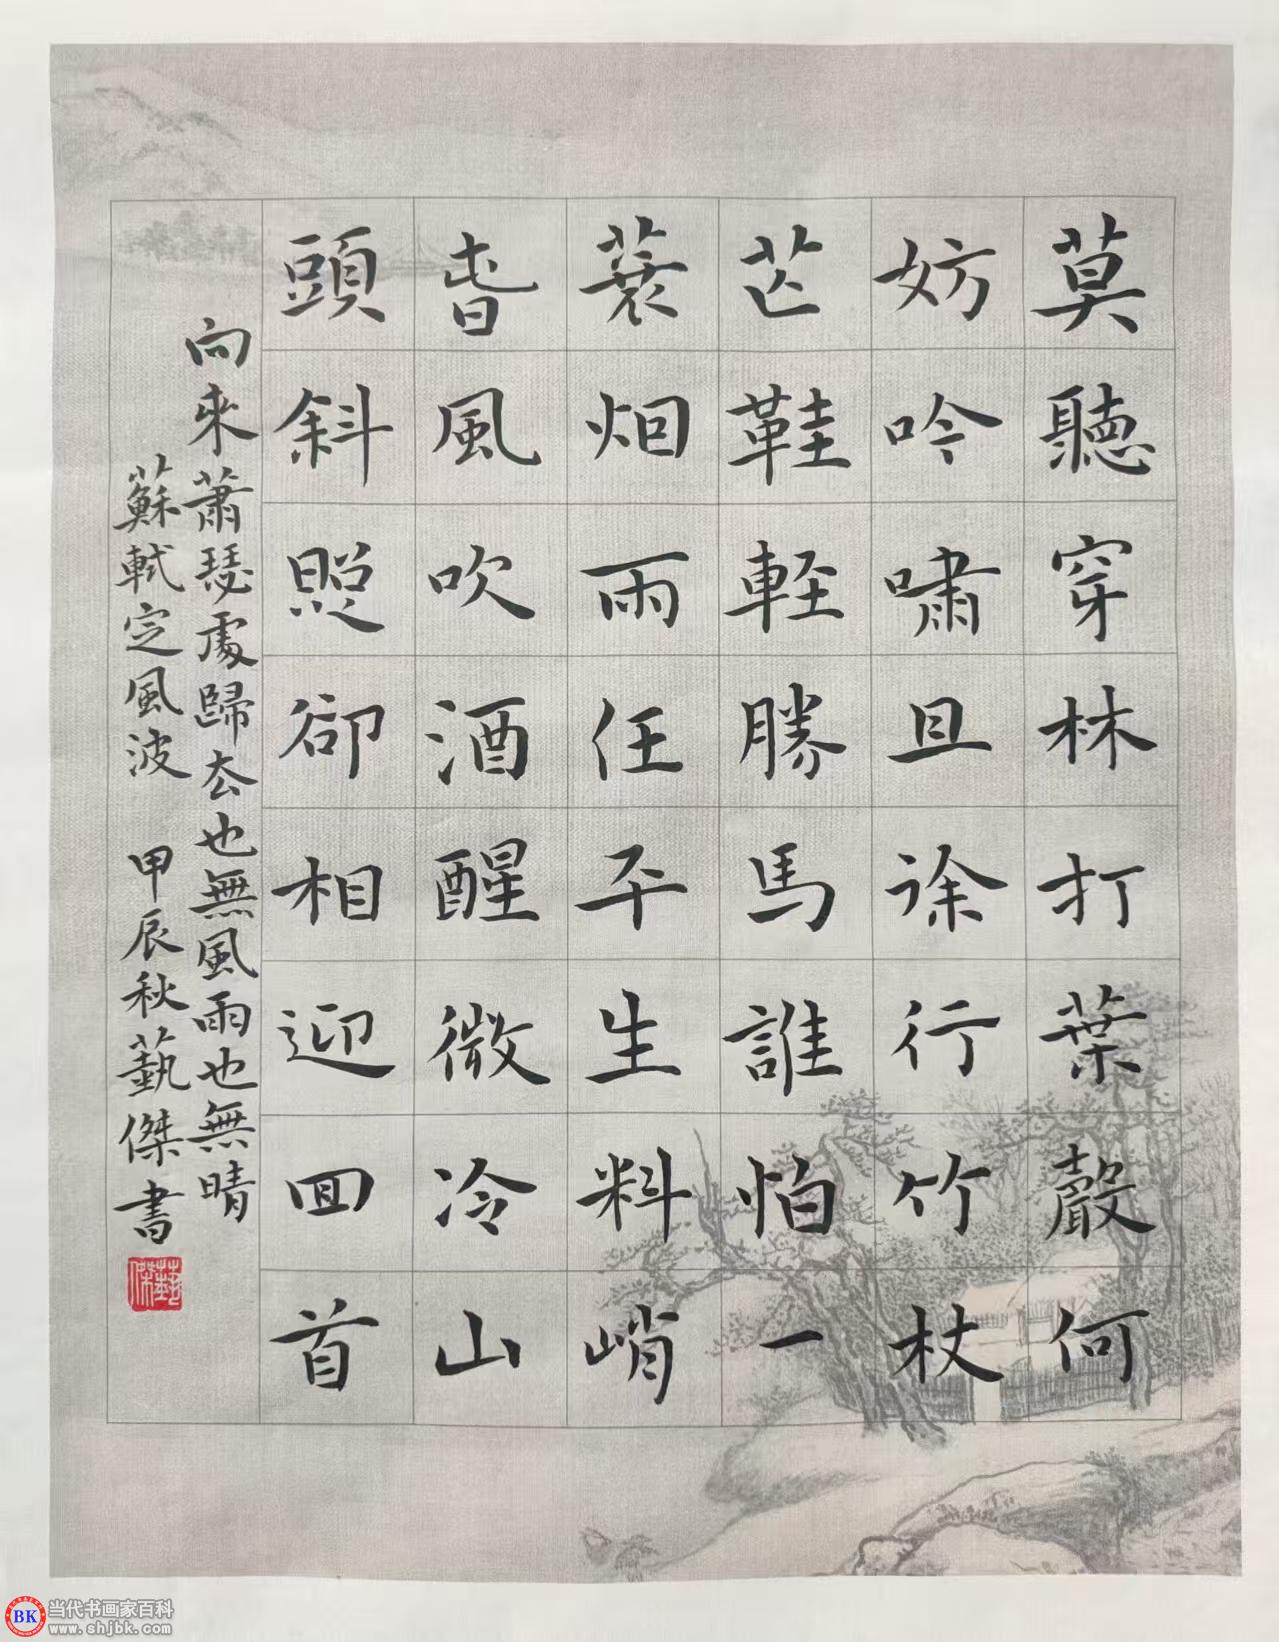 莫聽穿林打葉聲何
妨吟嘯且徐行竹杖
芒鞋輕勝馬誰怕一
蓑烟雨任平生料峭
春風吹酒醒微冷山
頭斜照卻相迎回首
向來蕭瑟處歸去也無風雨也無晴
蘇軾定風波 甲辰秋藝傑書
藝傑
BK 当代书画家百科
www.shjbk.com